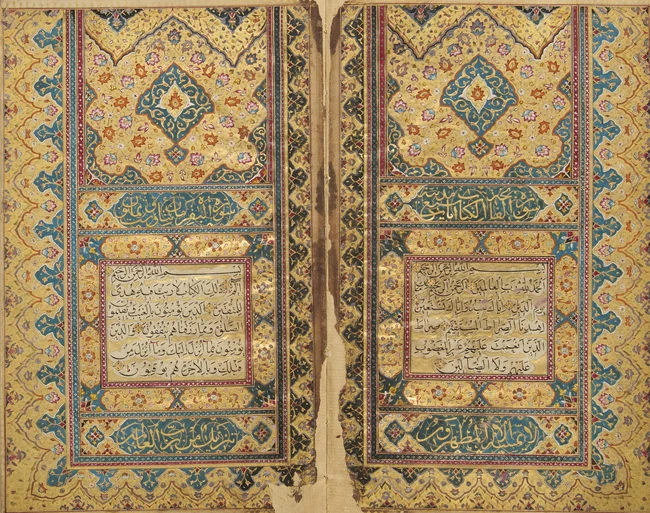 سورة فاتحة الكتاب
بسم الله الرحمن الرحيم
الحمد لله رب العالمين الرحمن الرحيم ملك
يوم الدين اياك نعبد واياك نستعين
اهدنا الصراط المستقيم صراط
الذين انعمت عليهم غير المغضوب
عليهم ولا الضالين
لا يمسه الا المطهرون
سورة البقرة
بسم الله الرحمن الرحيم
الم ذلك الكتاب لا ريب فيه هدى
للمتقين الذين يؤمنون بالغيب ويقيمون
الصلوة ومما رزقناهم ينفقون والذين
يؤمنون بما انزل اليك وما انزل من
قبلك وبالاخرة هم يوقنون
تنزيل من رب العالمين